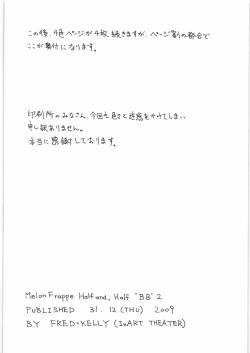 この後、4色ページが4枚続きますが、ページ割の都合で
ここが奥付になります。
印刷所のみなさん、今回も色々と迷惑をかけてしまい
申し訳ありません。
本当に感謝しております。
Melon Frappe Half and, Half "BB" 2
PUBLISHED 31. 12 (THU) 2009
BY FRED+KELLY (InART THEATER)